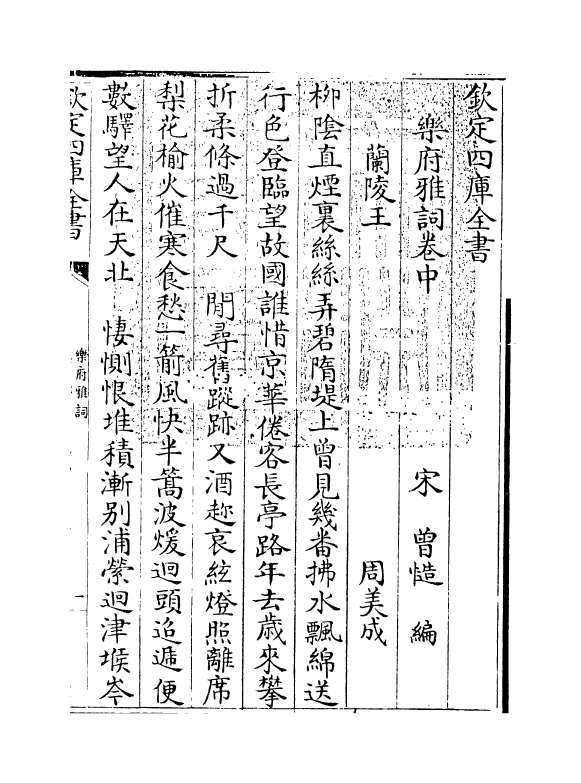 欽定四庫全書
樂府雅詞卷中　宋　曾慥　編
蘭陵王　周美成
柳隂直煙裏絲絲弄碧隋堤上曾見幾畨拂水飄綿送
行色登臨望故國誰惜京華倦客長亭路年去歲來攀
折柔條過千尺　閒尋舊蹤跡又酒趂哀絃燈照離席
梨花榆火催寒食愁一箭風快半篙波煖迴頭迢遞便
數驛望人在天北　悽惻恨堆積漸别浦縈迴津堠岑
欽定四庫全書
樂府雅詞
一